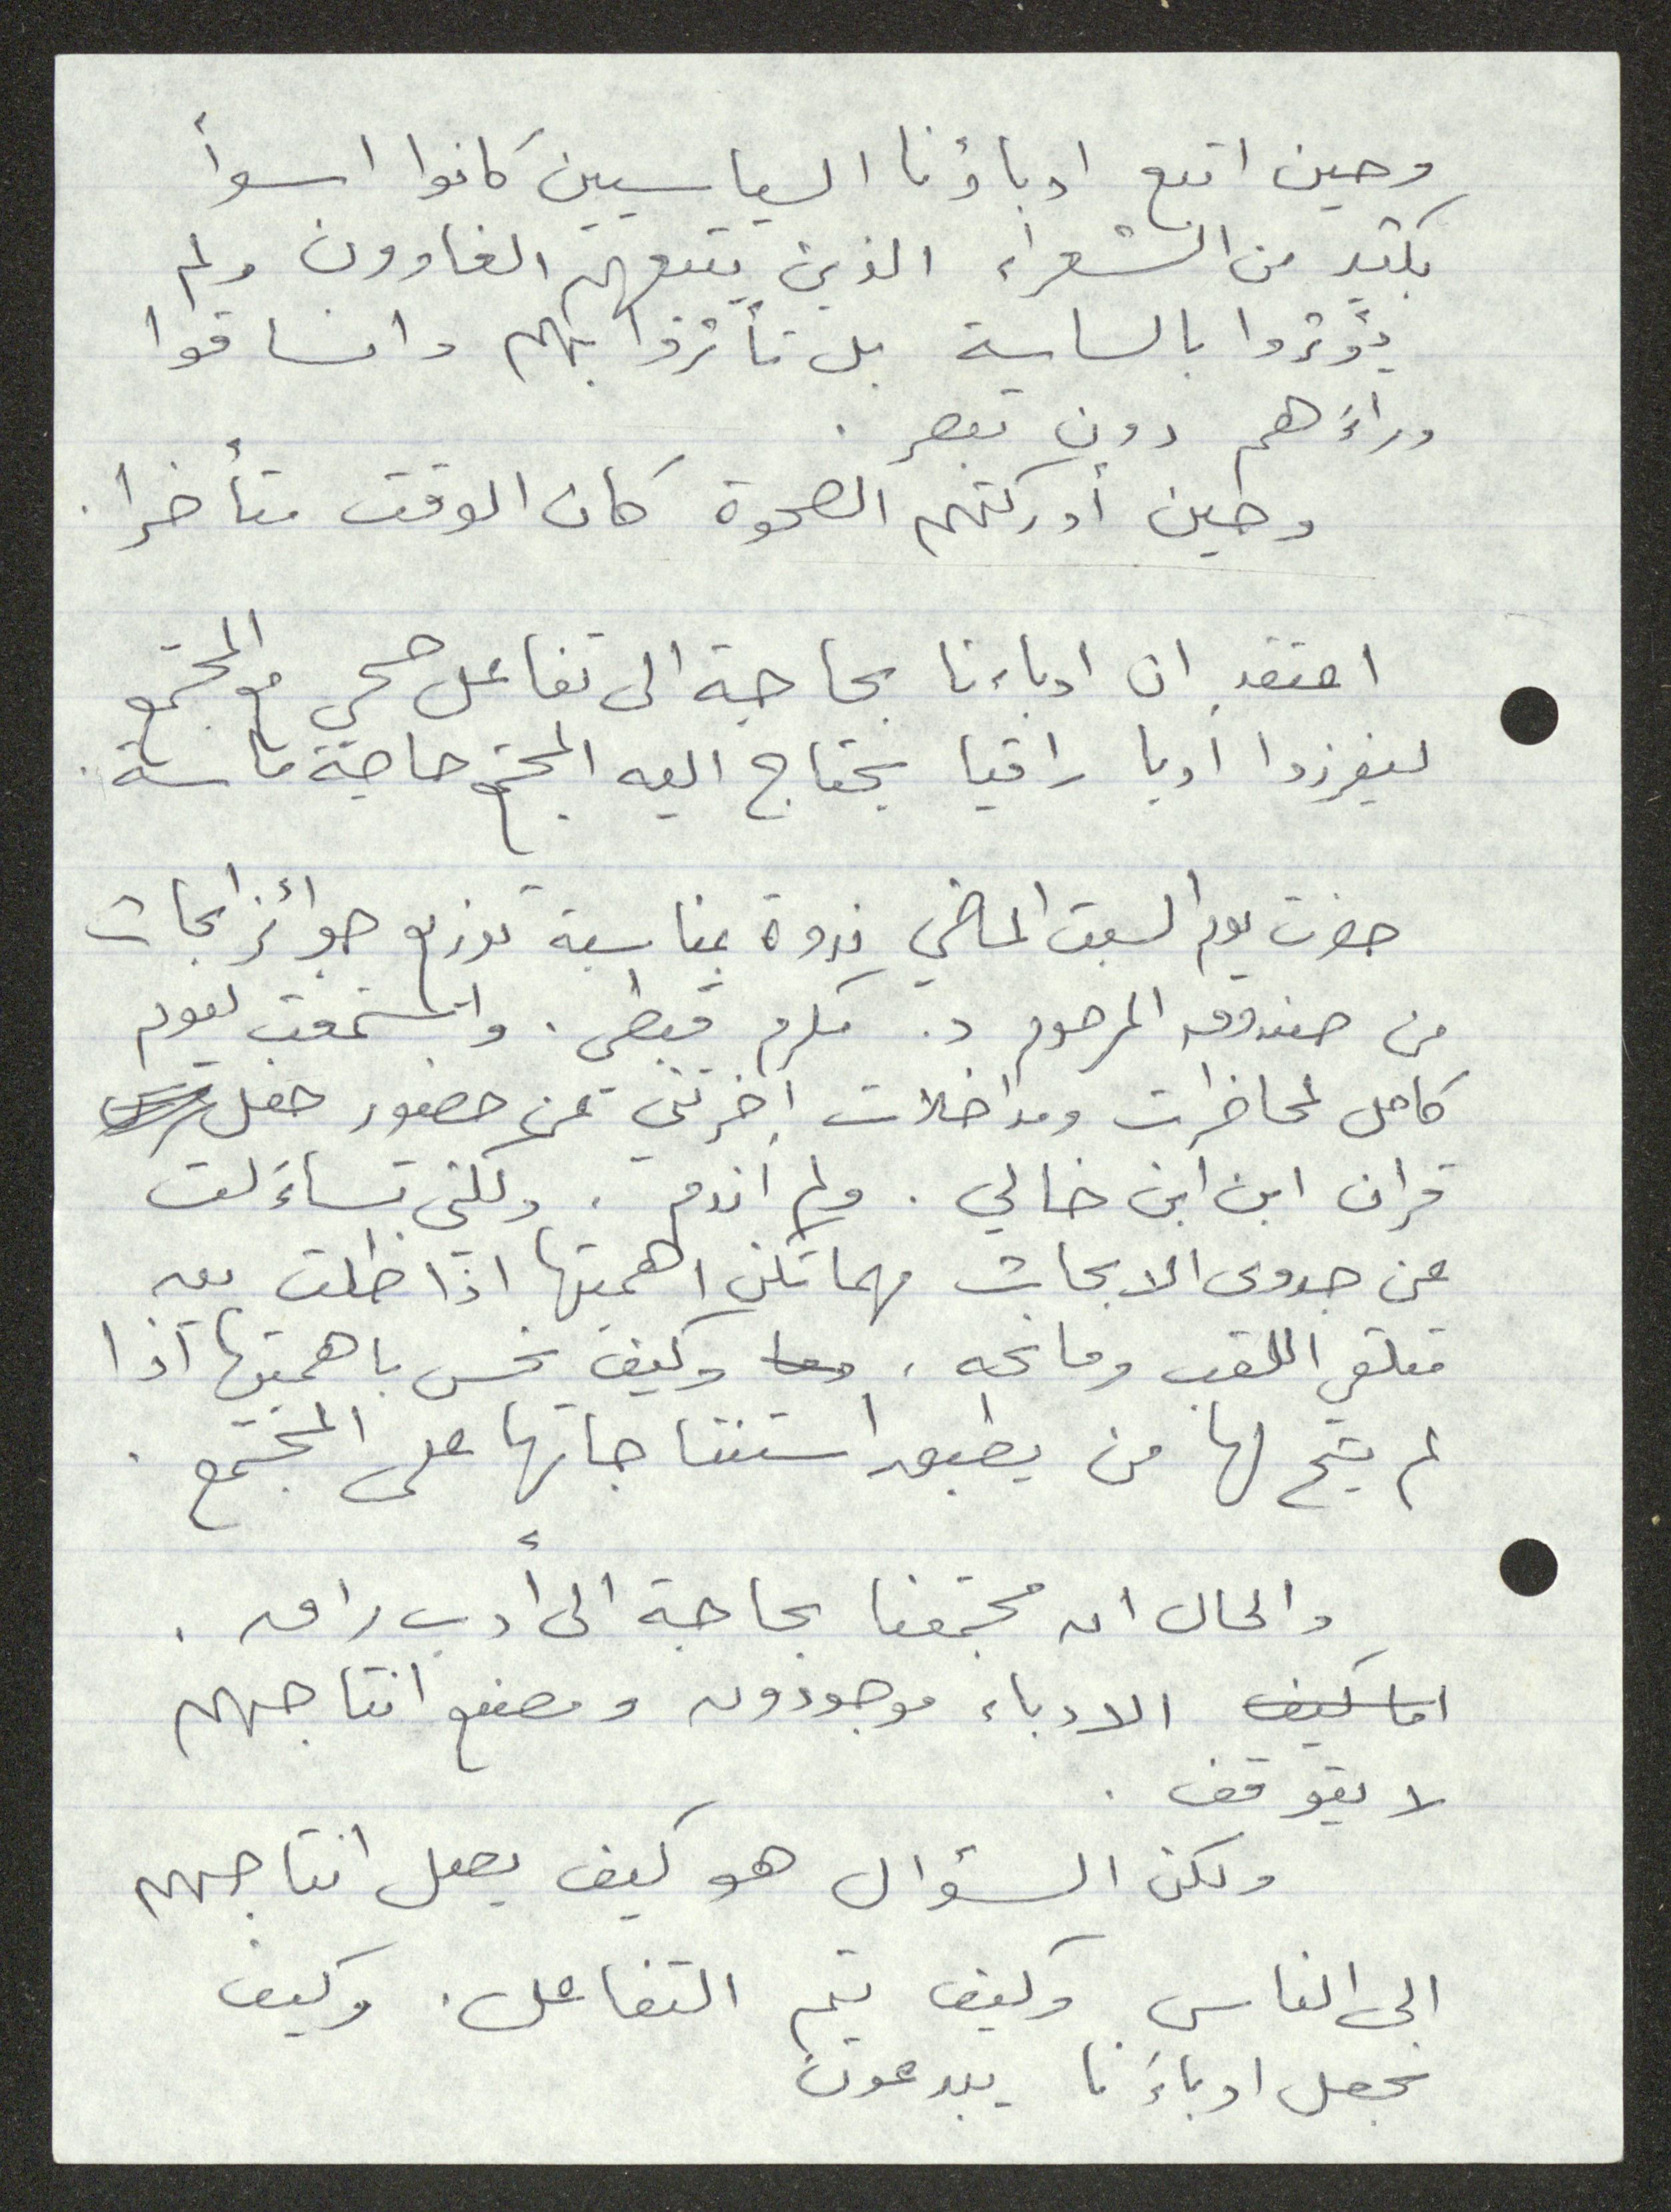 وحين اتبع ادباؤنا السياسيين كانوا اسوأ
بكثير من الشعراء الذين يتبعهم الغاوون ولم
يؤثروا بالساسة بل تأثروا بهم وانساقوا
وراءهم دون تبصر.
وحين أدركتهم الصحوة كان الوقت متأخرا.
اعتقد ان ادباءنا بحاجة الى تفاعل حي مع المجتمع
ليفرزوا أدبا راقيا يحتاج اليه المجتمع حاجة ماسة.
حضرت يوم السبت الماضي ندوة بمناسبة توزيع جوائز ابحاث
من صندوق المرحوم د. مكرم قبطي. واستمعت ليوم
كامل لمحاضرات ومداخلات أخرتني عن حضور حفل
قران ابن ابن خالي. ولم أندم. ولكني تساءلت
عن جدوى الابحاث مهما تكن اهميتها اذا ظلت بين
متلقي اللقب ومانحه. وكيف نحس باهميتها اذا
لم يتح لها من يطبق استنتاجاتها على المجتمع.
والحال ان مجتمعنا بحاجة الى أدب راق.
اما كيف الادباء موجودون ومصنع انتاجهم
لا يتوقف.
ولكن السؤال هو كيف يصل انتاجهم
الى الناس وكيف يتم التفاعل. وكيف
نجعل ادباءنا يبدعون